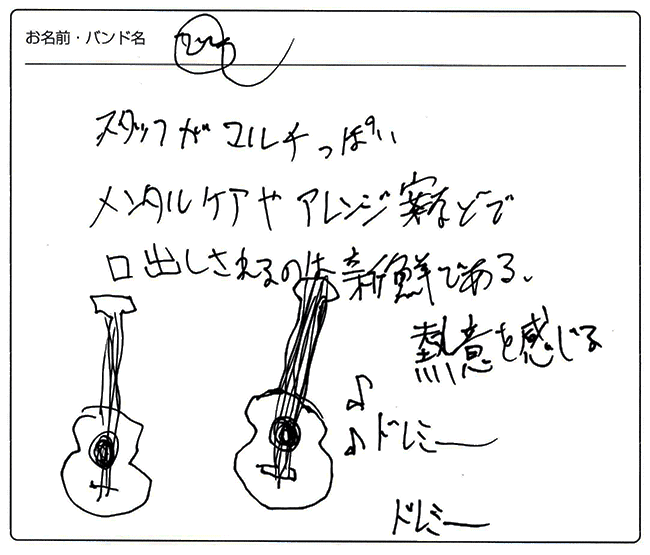 お名前・バンド名
スタッフがマルチっぽい
メンタルケアやアレンジ案などで
口出しされるのは新鮮である、
熱意を感じる
♪
♪ドレミー
ドレミー